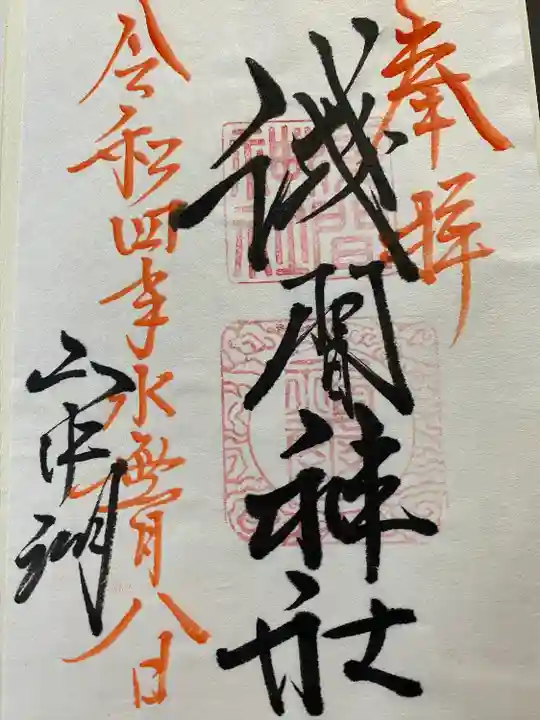 奉拝
浅間神社
令和四年水無月八日
山中湖